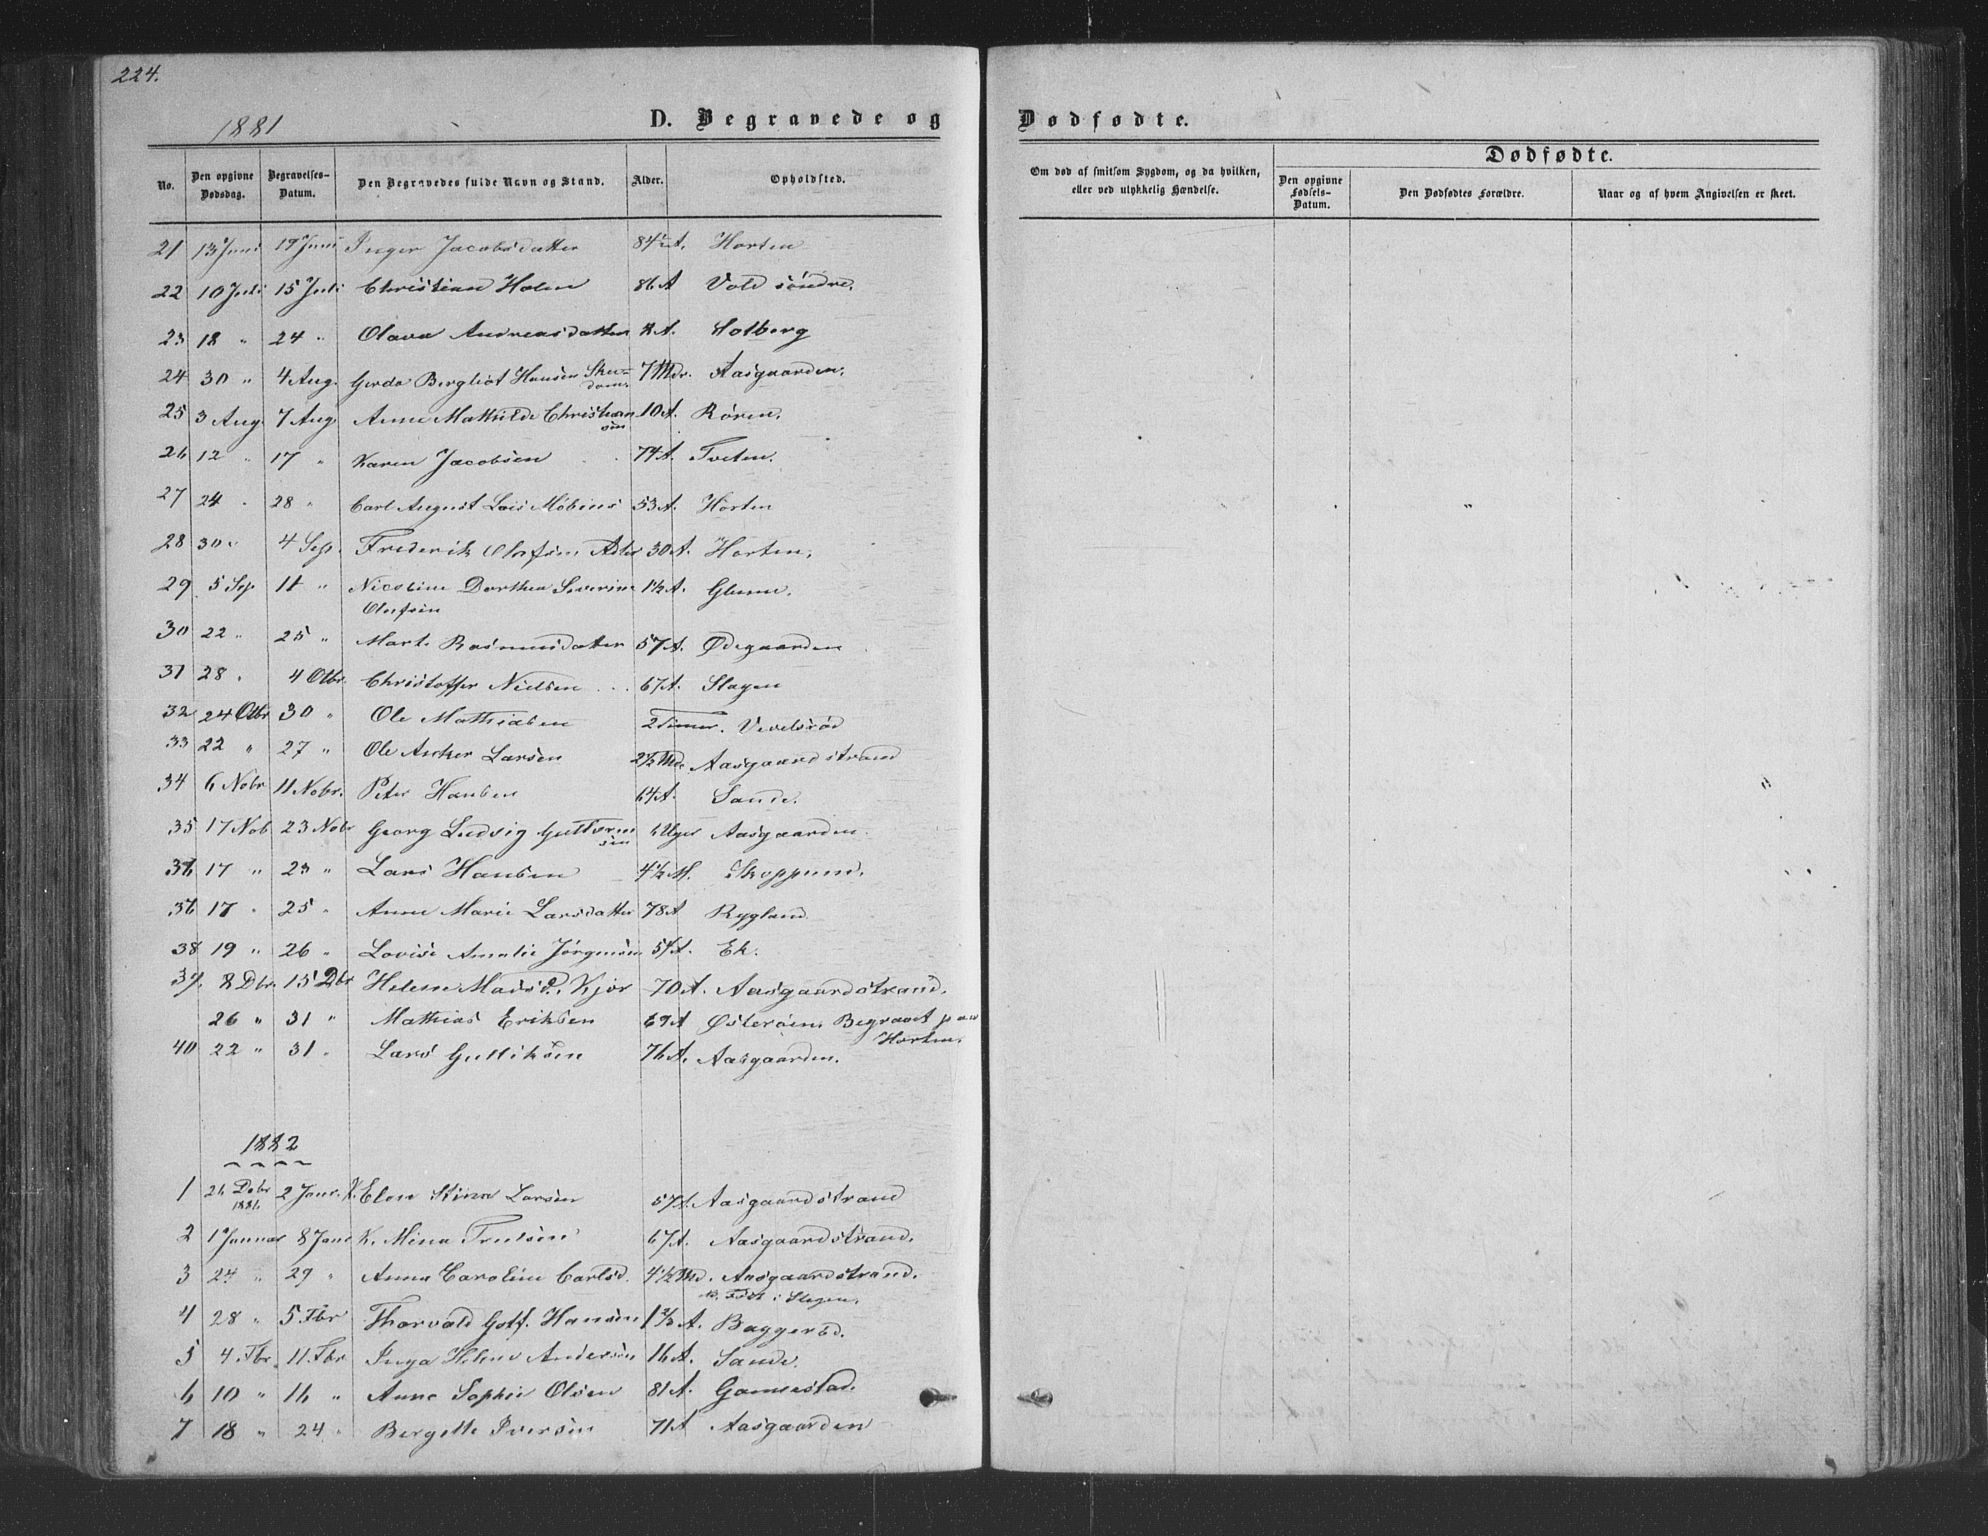 224.
1881
D. Begravede og Dødfødte.
No. Den opgivne Dødsdag. Begravelses-Datum. Den Begravedes fulde Navn og Stand. Alder. Opholdsted. Om død af smitsom Sygdom, og da hvilken, eller ved ulykkelig Hændelse. Dødfødte. Den opgivne Fødsels-Datum. Den Dødfødtes Forældre. Naar og af hvem Angivelsen er skeet.
21 13 Juni 19 Juni Inger Jacobsdatter 84½ A. Horten
22 10 Juli 15 Juli Christian Holm 86 A Vold söndre.
23 18 " 24 " Olava Andreasdatter 8 A. Holberg
24 30 " 4 Aug. Gerda Bergliot Hansen 7 Mdr. Aasgaarden.
25 3 Aug. 7 Aug Anne Mathilde Christian
sen 10 A. Rören.
26 12 " 17 " Karen Jacobsen 74 A. Tveten.
27 24 " 28 " Carl August Lois Möbius 53 A. Horten
28 30 " 4 Sep. Frederik Olafsen 30 A. Horten.
29 5 Sep 11 " Nicoline Dorthea Severine 1½ A. Glenne.
Olafsen
30 22 " 25 " Marte Rasmusdatter 57 A. Ødegaarden
31 28 " 4 Otbr. Christoffer Nielsen 67 A. Slagen
32 24 Otbr 30 " Ole Mathiasen 2 Timer. Vevelsröd
33 22 " 27 " Ole Anker Larsen 2½ Md. Aasgaardstrand
34 6 Nobr 11 Nobr. Peter Hansen 64 A. Sande.
35 17 Nob 23 Nobr Georg Ludvig Guttorm
sen 6 Uger Aasgaarden.
36 17 " 23 " Lars Hansen 4½ M. Skoppum.
17 " 25 " Anne Marie Larsdatter 78 A Rygland
38 19 " 26 " Lovise Amalie Jörgensen 54 A. Ek.
39. 8 Dbr. 15 Dbr Helene Madsd. Kjör 70 A. Aasgaardstrand.
26 " 31 " Mathias Eriksen 69 A Østeröen. Begravet paa
Horten.
40 22 " 31 " Lars Gulliksen 76 A. Aasgaarden.
1882
1 26 Debr 2 Janr. K. Elen Stina Larsen 57 A. Aasgaardstrand
1881.
2 1 Januar 8 Jan K. Mina Trulsen 67 A. Aasgaardstrand.
3 24 " 29 " Anna Caroline Carlsd. 4½ Md. Aasgaardstrand.
Föst i Slagen.
4 28 " 5 Fbr Thorvald Gotf. Hansen 1⅔ A. Baggeröd.
5 4 Fbr. 11 Fbr Inga Helene Andersen 16 A. Sande.
6 10 " 16 " Anne Sophie Olsen 81 A. Gannestad.
7 18 " 24 " Bergette Iversen 71 A Aasgaarden